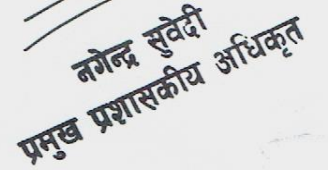 नगेन्द्र सुवेदी
प्रमुख प्रशासकीय अधिकृत